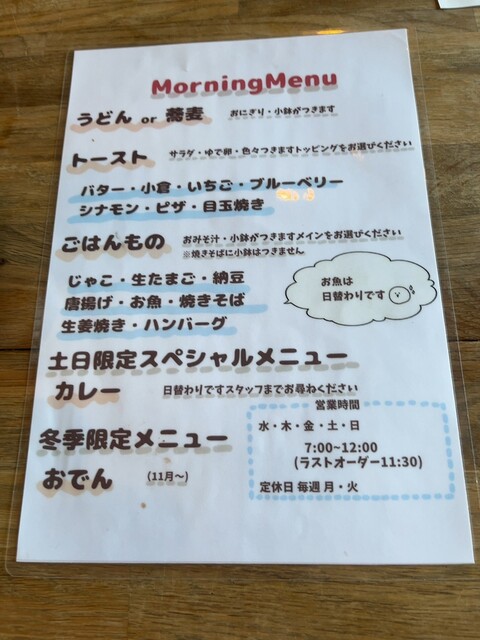 MorningMenu
うどん or 蕎麦 おにぎり・小鉢がつきます
トースト サラダ・ゆで卵・色々つきますトッピングをお選びください
バター・小倉・いちご・ブルーベリー
シナモン・ピザ・目玉焼き
ごはんもの おみそ汁・小鉢がつきますメインをお選びください
※焼きそばに小鉢はつきません
じゃこ・生たまご・納豆
唐揚げ・お魚・焼きそば
生姜焼き・ハンバーグ
お魚は
日替わりです
土日限定スペシャルメニュー
カレー 日替わりですスタッフまでお尋ねください
冬季限定メニュー
おでん (11月〜)
営業時間
水・木・金・土・日
7:00~12:00
(ラストオーダー11:30)
定休日 毎週 月・火